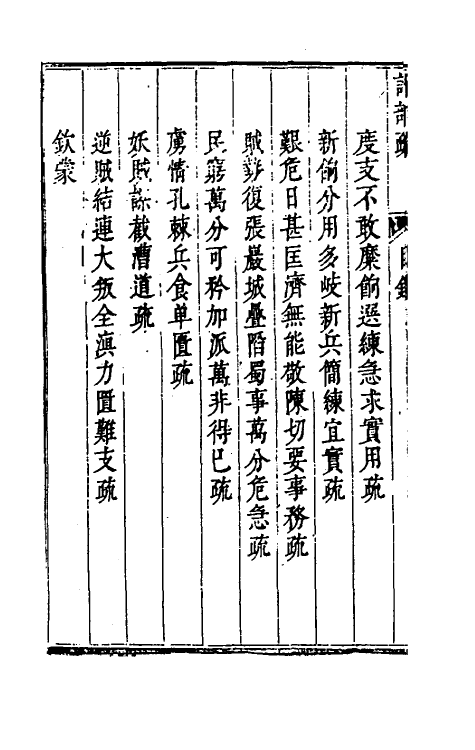 度支不敢糜餉選練急求實用疏
新餉分用多岐新兵簡練宜實疏
艱危日甚匡濟無能敬陳切要事務疏
賊勢復張巖城疊陷蜀事萬分危急疏
民窮萬分可矜加派萬非得已疏
虜情孔棘兵食单匱疏
妖賊謀截漕道疏
逆賊結連大叛全滇力匱難支疏
欽蒙